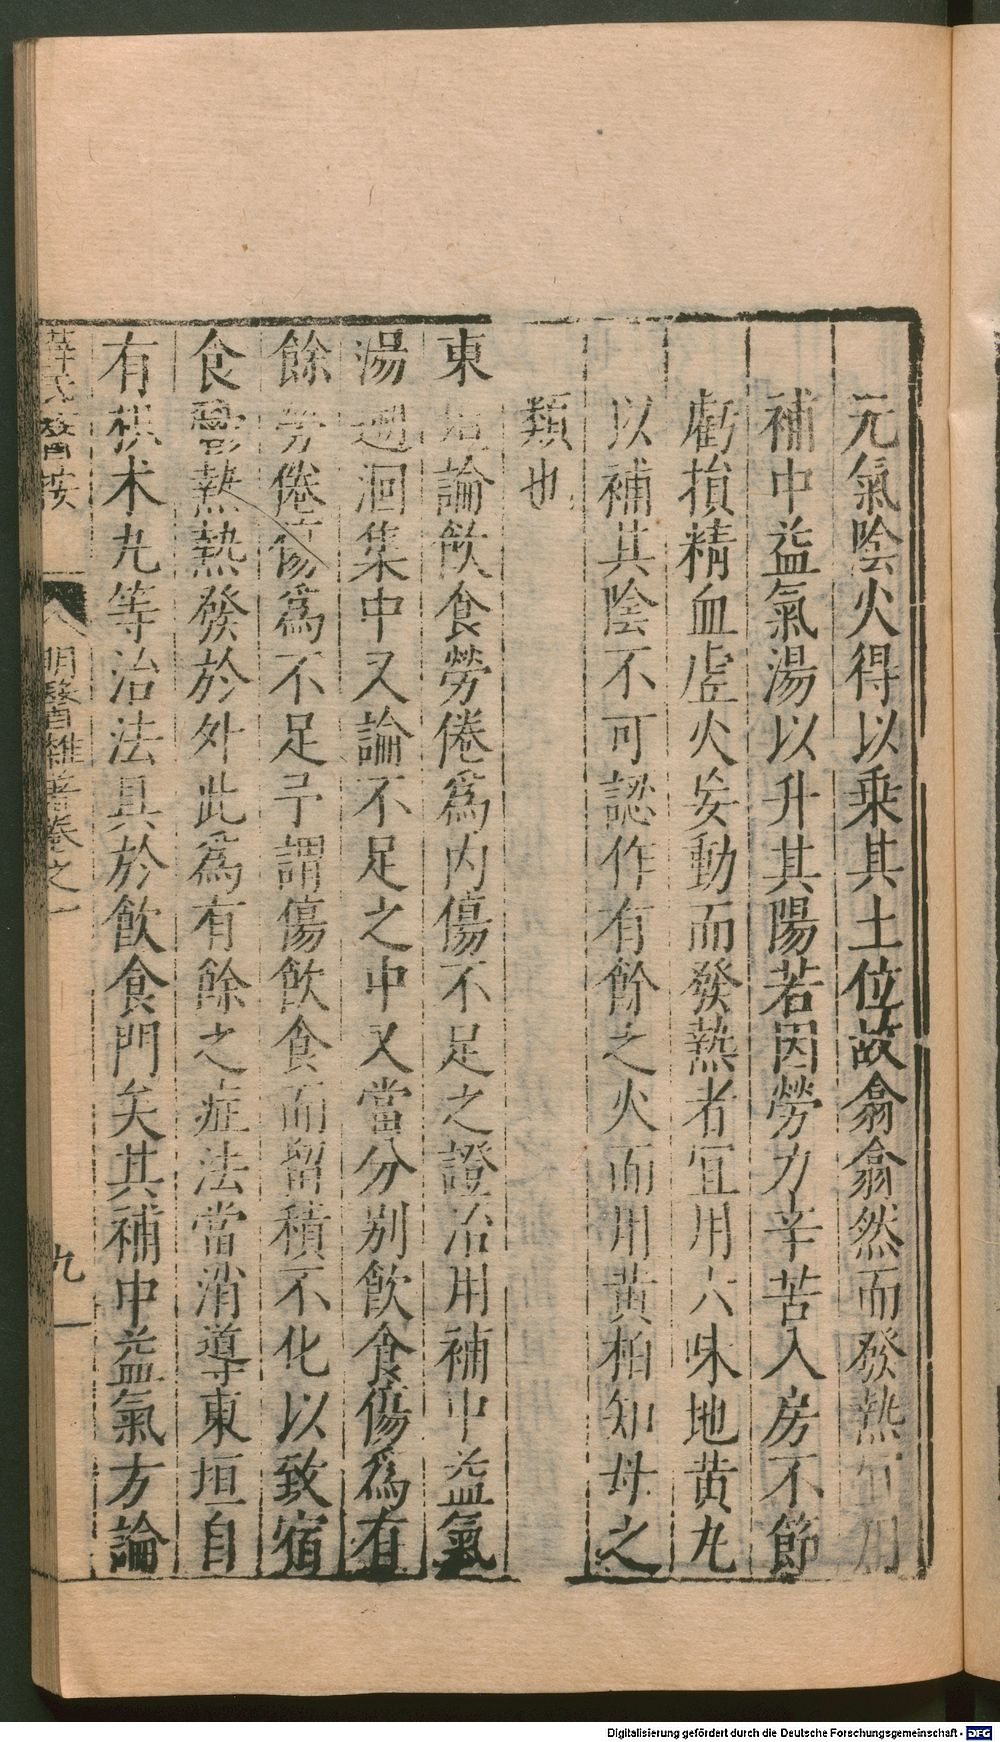 元氣陰火得以乗其土位故翕翕然而發熱宜用
補中益氣湯以升其陽若因勞力辛苦入房不節
虧損精血虛火妄動而發熱者宜用六味地黄丸
以補其陰不可認作有餘之火而用黄栢知母之
類也
東垣論飲食勞倦為内傷不足之證治用補中益氣
湯遡洄集中又論不足之中又當分别飲食傷為有
餘勞倦傷為不足予謂傷飲食而留積不化以致宿
食鬱熱熱發於外此為有餘之症法當消導東垣自
有枳术丸等治法具於飲食門矣其補中益氣方論
薛氏醫按
明醫雜著卷之一
九
Digitalisierung gefördert durch die Deutsche Forschungsgemeinschaft - DFG